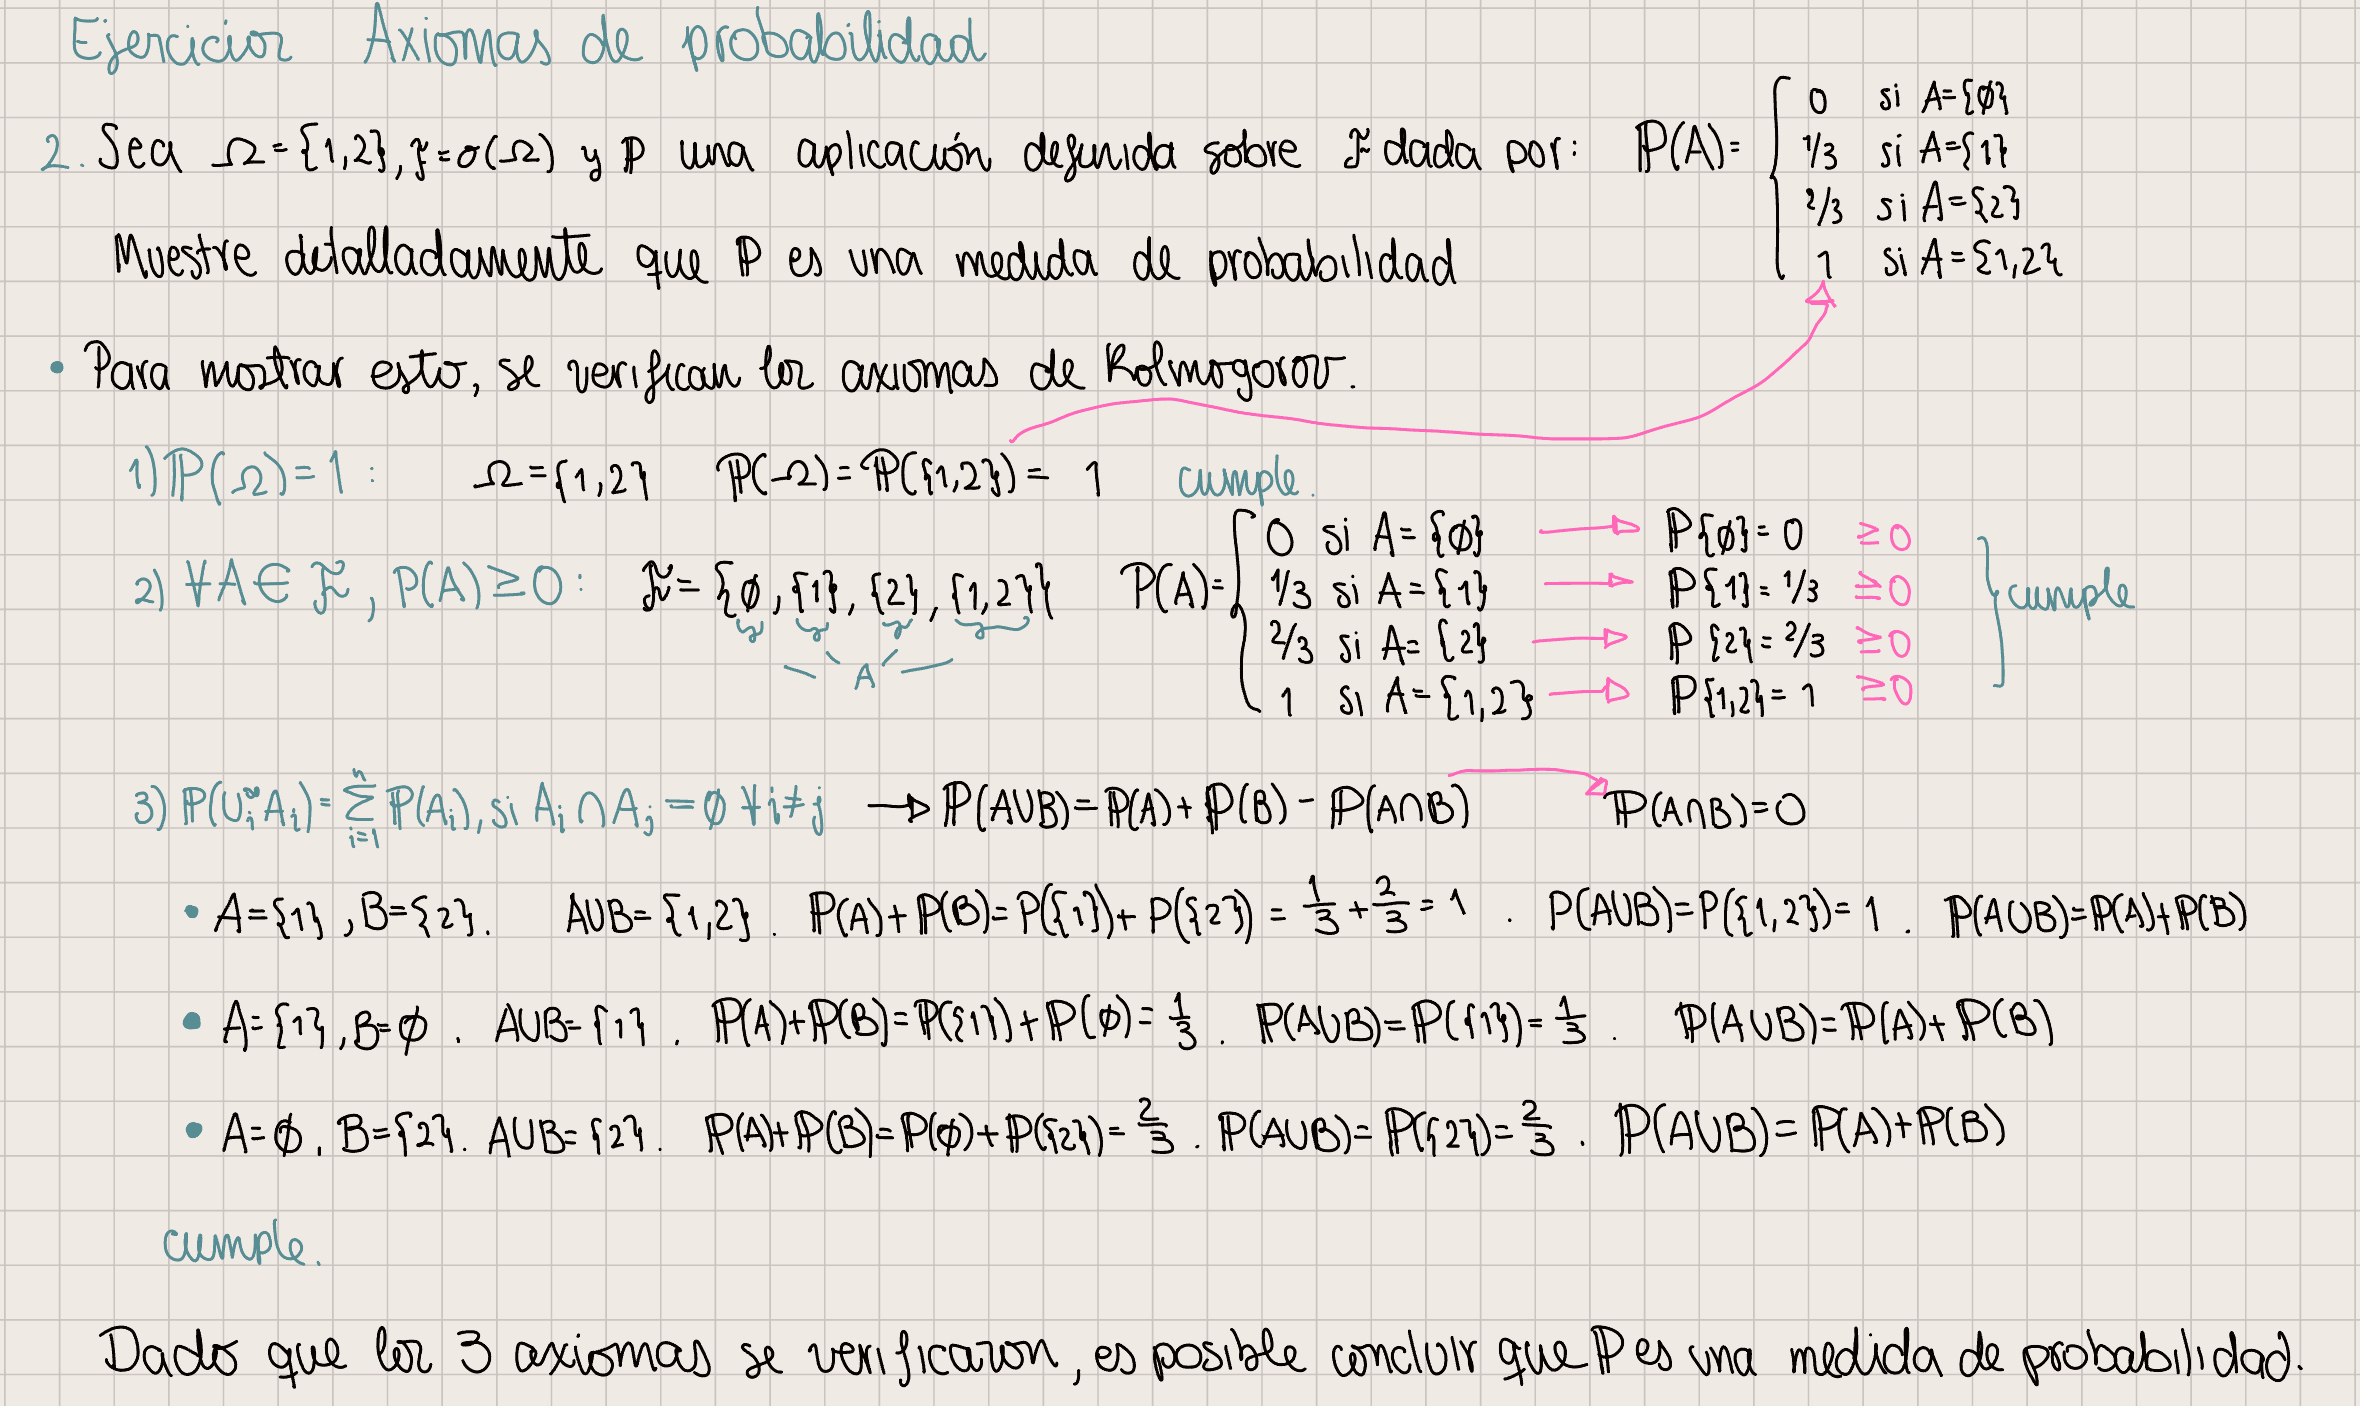 Ejercicios Axiomas de probabilidad
2. Sea Ω={1,2}, F=σ(Ω) y ℙ una aplicación definida sobre F dada por: ℙ(A)=
0 si A={∅}
1/3 si A={1}
2/3 si A={2}
1 si A={1,2}
Muestre detalladamente que ℙ es una medida de probabilidad
• Para mostrar esto, se verifican los axiomas de Kolmogorov.
1) ℙ(Ω)=1: Ω={1,2} ℙ(Ω)=ℙ({1,2})= 1 cumple.
2) ∀A∈F, P(A)≥0: F={∅,{1},{2},{1,2}} P(A)=
A
0 si A={∅} → ℙ{∅}=0 ≥0
1/3 si A={1} → ℙ{1}=1/3 ≥0
2/3 si A={2} → ℙ{2}=2/3 ≥0
1 si A={1,2} → ℙ{1,2}=1 ≥0
cumple
3) ℙ(∪_i^∞ A_i)=∑_{i=1}^n ℙ(A_i), si A_i ∩ A_j = ∅ ∀ i≠j → ℙ(A∪B)=ℙ(A)+ℙ(B)-ℙ(A∩B) ℙ(A∩B)=0
• A={1}, B={2}. A∪B={1,2}. ℙ(A)+ℙ(B)=P({1})+P({2})=1/3+2/3=1. P(A∪B)=P({1,2})=1. ℙ(A∪B)=ℙ(A)+ℙ(B)
• A={1}, B=∅. A∪B={1}. ℙ(A)+ℙ(B)=ℙ({1})+ℙ(∅)=1/3. ℙ(A∪B)=ℙ({1})=1/3. ℙ(A∪B)=ℙ(A)+ℙ(B)
• A=∅, B={2}. A∪B={2}. ℙ(A)+ℙ(B)=ℙ(∅)+ℙ({2})=2/3. ℙ(A∪B)=ℙ({2})=2/3. ℙ(A∪B)=ℙ(A)+ℙ(B)
cumple.
Dado que los 3 axiomas se verificaron, es posible concluir que ℙ es una medida de probabilidad.